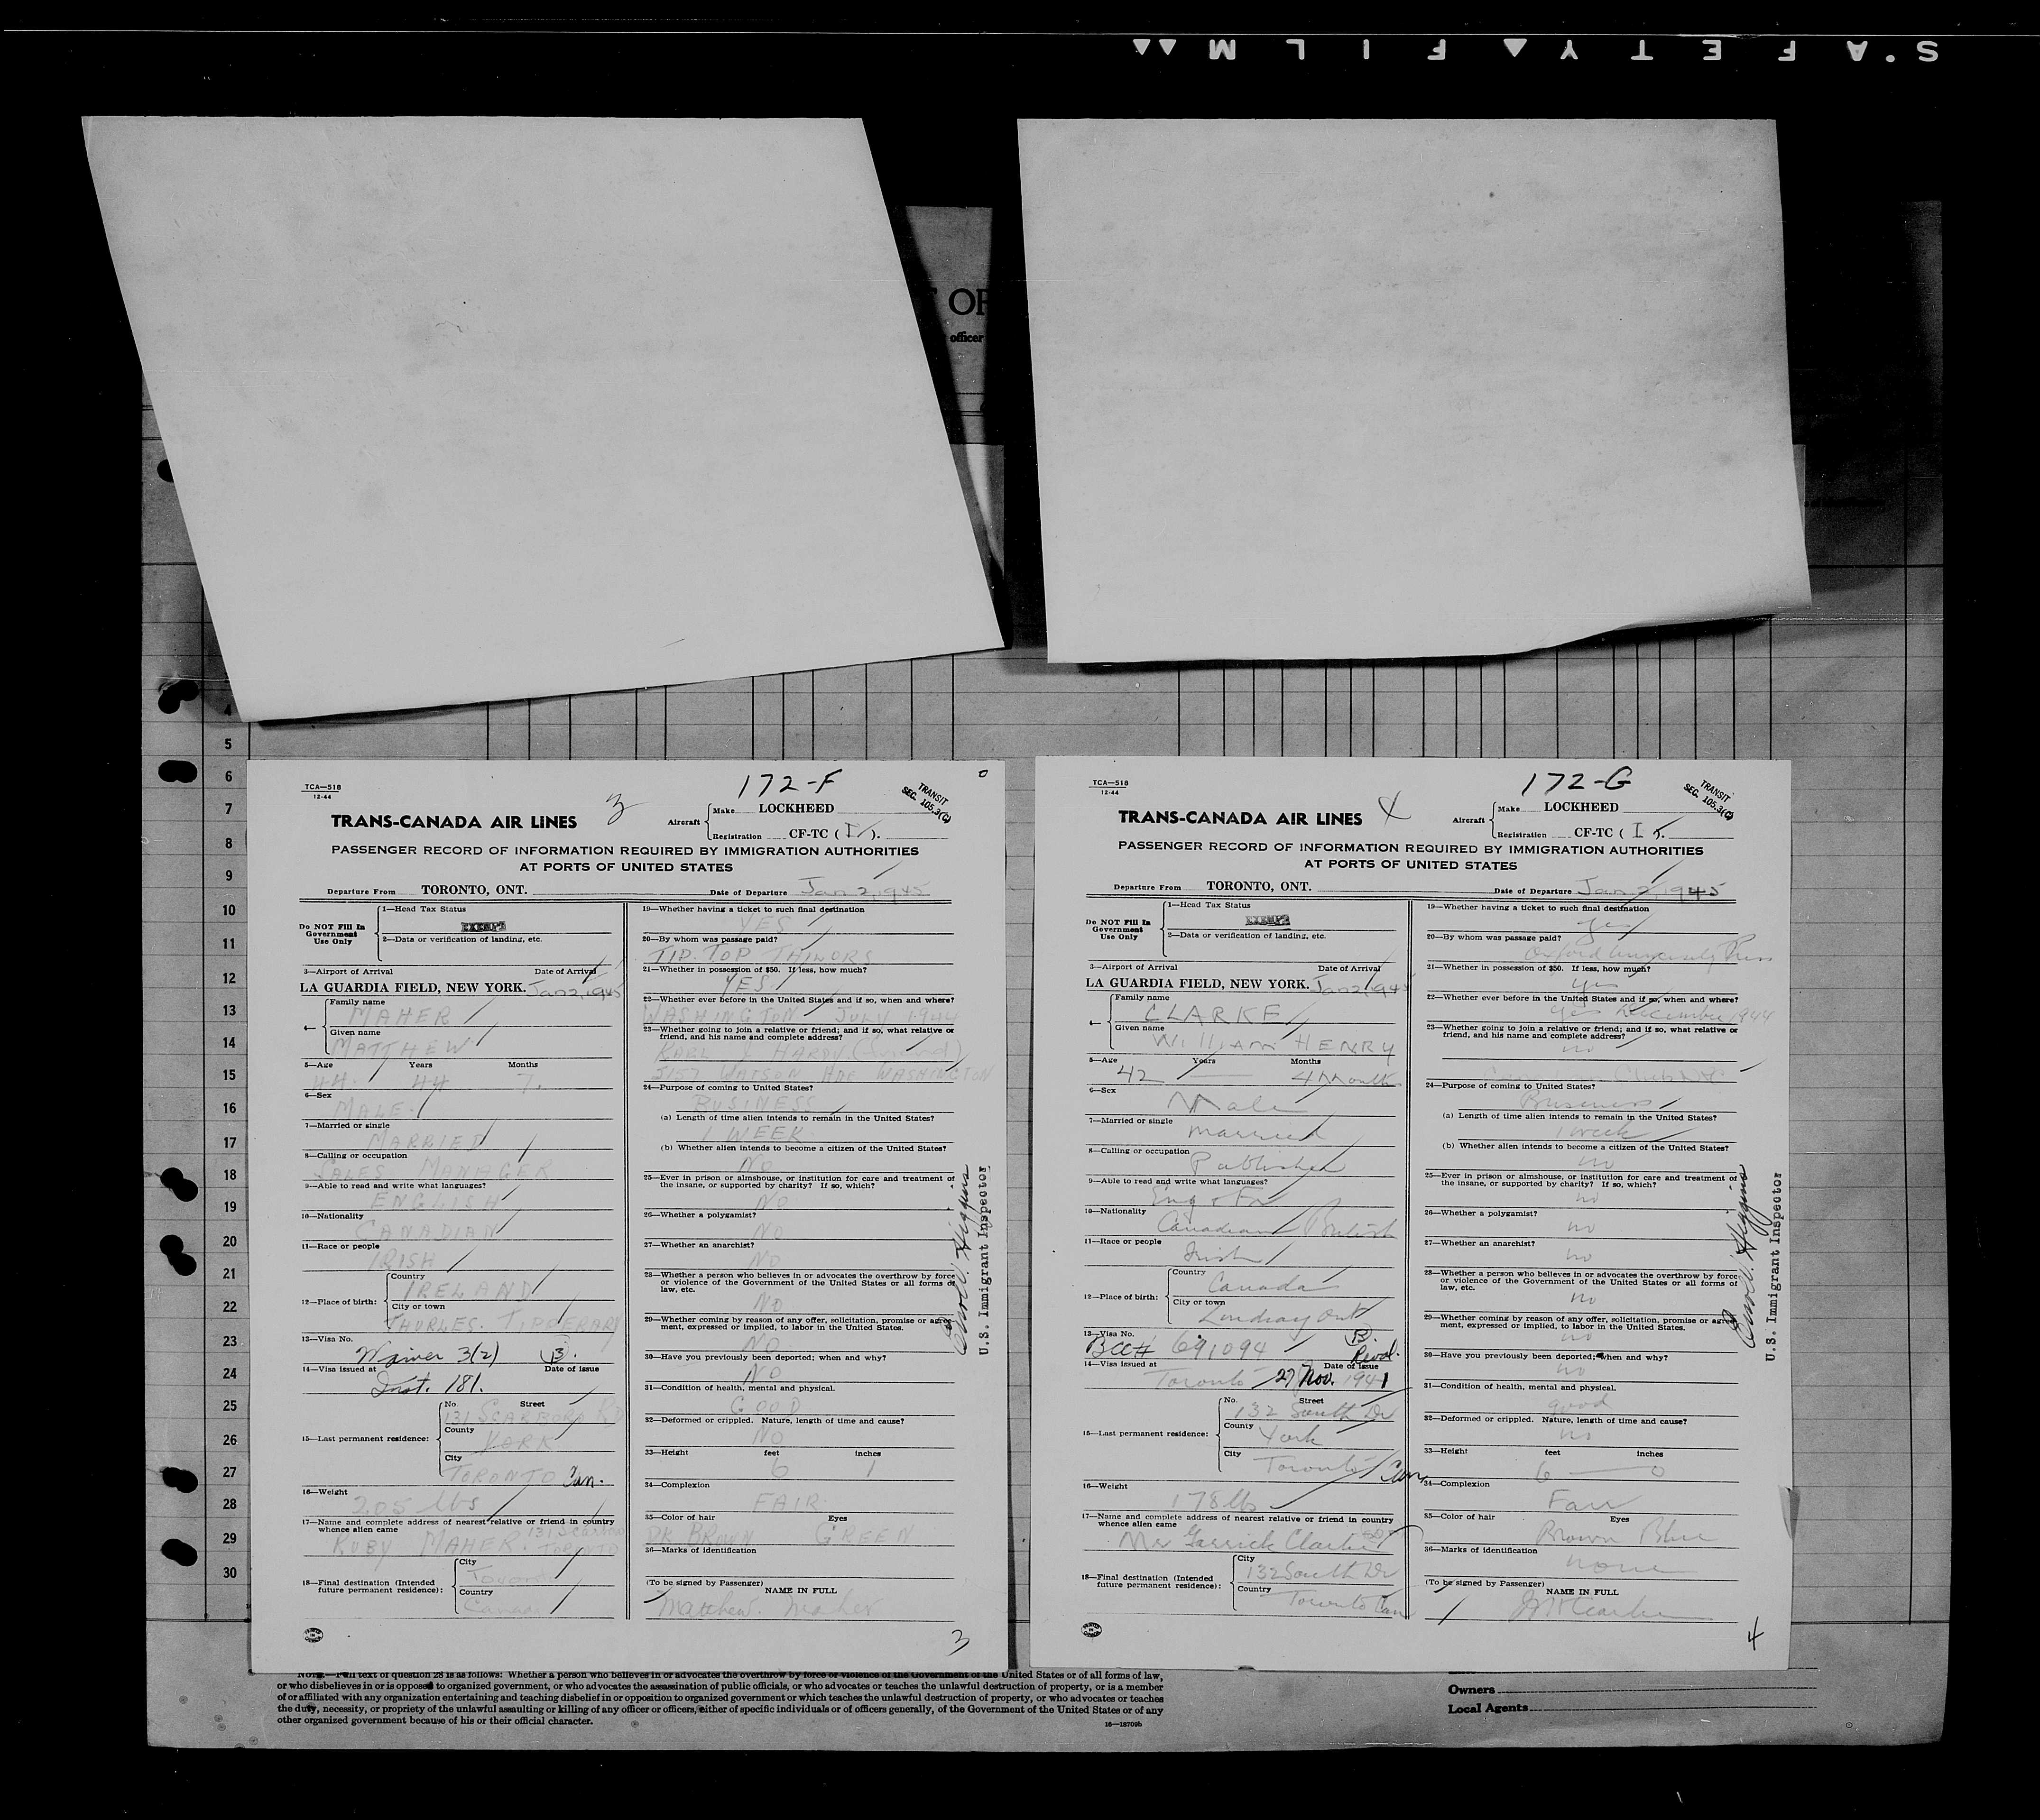 S.A.F.E.T.Y FILM
T OF
officer
4
5
6
7
8
9
10
11
12
13
14
15
16
17
18
19
20
21
22
23
24
25
26
27
28
29
30
TCA—518
12-44
172-F
TRANSIT
SEC. 105.3(C)
3
TRANS-CANADA AIR LINES
Aircraft
Make LOCKHEED
Registration CF-TC ( I ).
PASSENGER RECORD OF INFORMATION REQUIRED BY IMMIGRATION AUTHORITIES
AT PORTS OF UNITED STATES
Departure From TORONTO, ONT. Date of Departure Jan 2, 1945
Do NOT Fill In
Government
Use Only
1—Head Tax Status
EXEMPT
2—Data or verification of landing, etc.
3—Airport of Arrival Date of Arrival
LA GUARDIA FIELD, NEW YORK. Jan 2, 1945
4—
Family name
MAHER
Given name
MATTHEW
5—Age Years Months
44. 44 7.
6—Sex
MALE.
7—Married or single
MARRIED
8—Calling or occupation
SALES MANAGER
9—Able to read and write what languages?
ENGLISH
10—Nationality
CANADIAN
11—Race or people
IRISH
12—Place of birth:
Country
IRELAND
City or town
THURLES. TIPPERARY
13—Visa No.
Waiver 3(2) B.
14—Visa issued at Date of issue
Inst. 181.
15—Last permanent residence:
No. Street
131 SCARBORO RD
County
YORK
City
TORONTO Can.
16—Weight
205 lbs
17—Name and complete address of nearest relative or friend in country
whence alien came
131 Scarboro
RUBY MAHER. TORONTO
18—Final destination (Intended
future permanent residence):
City
Toronto
Country
Canada
19—Whether having a ticket to such final destination
YES
20—By whom was passage paid?
TIP. TOP TAILORS
21—Whether in possession of $50. If less, how much?
YES.
22—Whether ever before in the United States and if so, when and where?
WASHINGTON JULY 1944
23—Whether going to join a relative or friend; and if so, what relative or
friend, and his name and complete address?
HARDY (Friend)
5157 WATSON WASHINGTON
24—Purpose of coming to United States?
BUSINESS
(a) Length of time alien intends to remain in the United States?
1 WEEK
(b) Whether alien intends to become a citizen of the United States?
NO
25—Ever in prison or almshouse, or institution for care and treatment of
the insane, or supported by charity? If so, which?
NO
26—Whether a polygamist?
NO
27—Whether an anarchist?
NO
28—Whether a person who believes in or advocates the overthrow by force
or violence of the Government of the United States or all forms of
law, etc.
NO
29—Whether coming by reason of any offer, solicitation, promise or agree-
ment, expressed or implied, to labor in the United States.
NO
30—Have you previously been deported; when and why?
NO
31—Condition of health, mental and physical.
GOOD
32—Deformed or crippled. Nature, length of time and cause?
NO
33—Height feet inches
6 1
34—Complexion
FAIR
35—Color of hair Eyes
DK BROWN GREEN
36—Marks of identification
(To be signed by Passenger)
NAME IN FULL
Matthew. Maher
U.S. Immigrant Inspector
3
TCA—518
12-44
172-G
TRANSIT
SEC. 105.3(C)
4
TRANS-CANADA AIR LINES
Aircraft
Make LOCKHEED
Registration CF-TC ( I ).
PASSENGER RECORD OF INFORMATION REQUIRED BY IMMIGRATION AUTHORITIES
AT PORTS OF UNITED STATES
Departure From TORONTO, ONT. Date of Departure Jan 2, 1945
Do NOT Fill In
Government
Use Only
1—Head Tax Status
EXEMPT
2—Data or verification of landing, etc.
3—Airport of Arrival Date of Arrival
LA GUARDIA FIELD, NEW YORK. Jan 2, 1945
4—
Family name
CLARKE
Given name
WILLIAM HENRY
5—Age Years Months
42 4 Months
6—Sex
Male
7—Married or single
married
8—Calling or occupation
Publisher
9—Able to read and write what languages?
Eng & Fr
10—Nationality
Canadian British
11—Race or people
Irish
12—Place of birth:
Country
Canada
City or town
Lindsay Ont
13—Visa No.
BCC# 691094 B.
Reval.
14—Visa issued at Date of issue
Toronto 27 Nov. 1941
15—Last permanent residence:
No. Street
132 South Dr
County
York
City
Toronto Can
16—Weight
178 lb
17—Name and complete address of nearest relative or friend in country
whence alien came
Mr Garrick Clarke
18—Final destination (Intended
future permanent residence):
City
132 South Dr
Country
Toronto Can
19—Whether having a ticket to such final destination
yes
20—By whom was passage paid?
Oxford University Press
21—Whether in possession of $50. If less, how much?
yes
22—Whether ever before in the United States and if so, when and where?
yes December 1944
23—Whether going to join a relative or friend; and if so, what relative or
friend, and his name and complete address?
no
24—Purpose of coming to United States?
Business
(a) Length of time alien intends to remain in the United States?
1 week
(b) Whether alien intends to become a citizen of the United States?
no
25—Ever in prison or almshouse, or institution for care and treatment of
the insane, or supported by charity? If so, which?
no
26—Whether a polygamist?
no
27—Whether an anarchist?
no
28—Whether a person who believes in or advocates the overthrow by force
or violence of the Government of the United States or all forms of
law, etc.
no
29—Whether coming by reason of any offer, solicitation, promise or agree-
ment, expressed or implied, to labor in the United States.
no
30—Have you previously been deported; when and why?
no
31—Condition of health, mental and physical.
good
32—Deformed or crippled. Nature, length of time and cause?
no
33—Height feet inches
6 0
34—Complexion
Fair
35—Color of hair Eyes
Brown Blue
36—Marks of identification
none
(To be signed by Passenger)
NAME IN FULL
U.S. Immigrant Inspector
4
NOTE.—Full text of question 28 is as follows: Whether a person who believes in or advocates the overthrow by force or violence of the Government of the United States or of all forms of law,
or who disbelieves in or is opposed to organized government, or who advocates the assassination of public officials, or who advocates or teaches the unlawful destruction of property, or is a member
of or affiliated with any organization entertaining and teaching disbelief in or opposition to organized government or which teaches the unlawful destruction of property, or who advocates or teaches
the duty, necessity, or propriety of the unlawful assaulting or killing of any officer or officers, either of specific individuals or of officers generally, of the Government of the United States or of any
other organized government because of his or their official character.
16—18709b
Owners
Local Agents